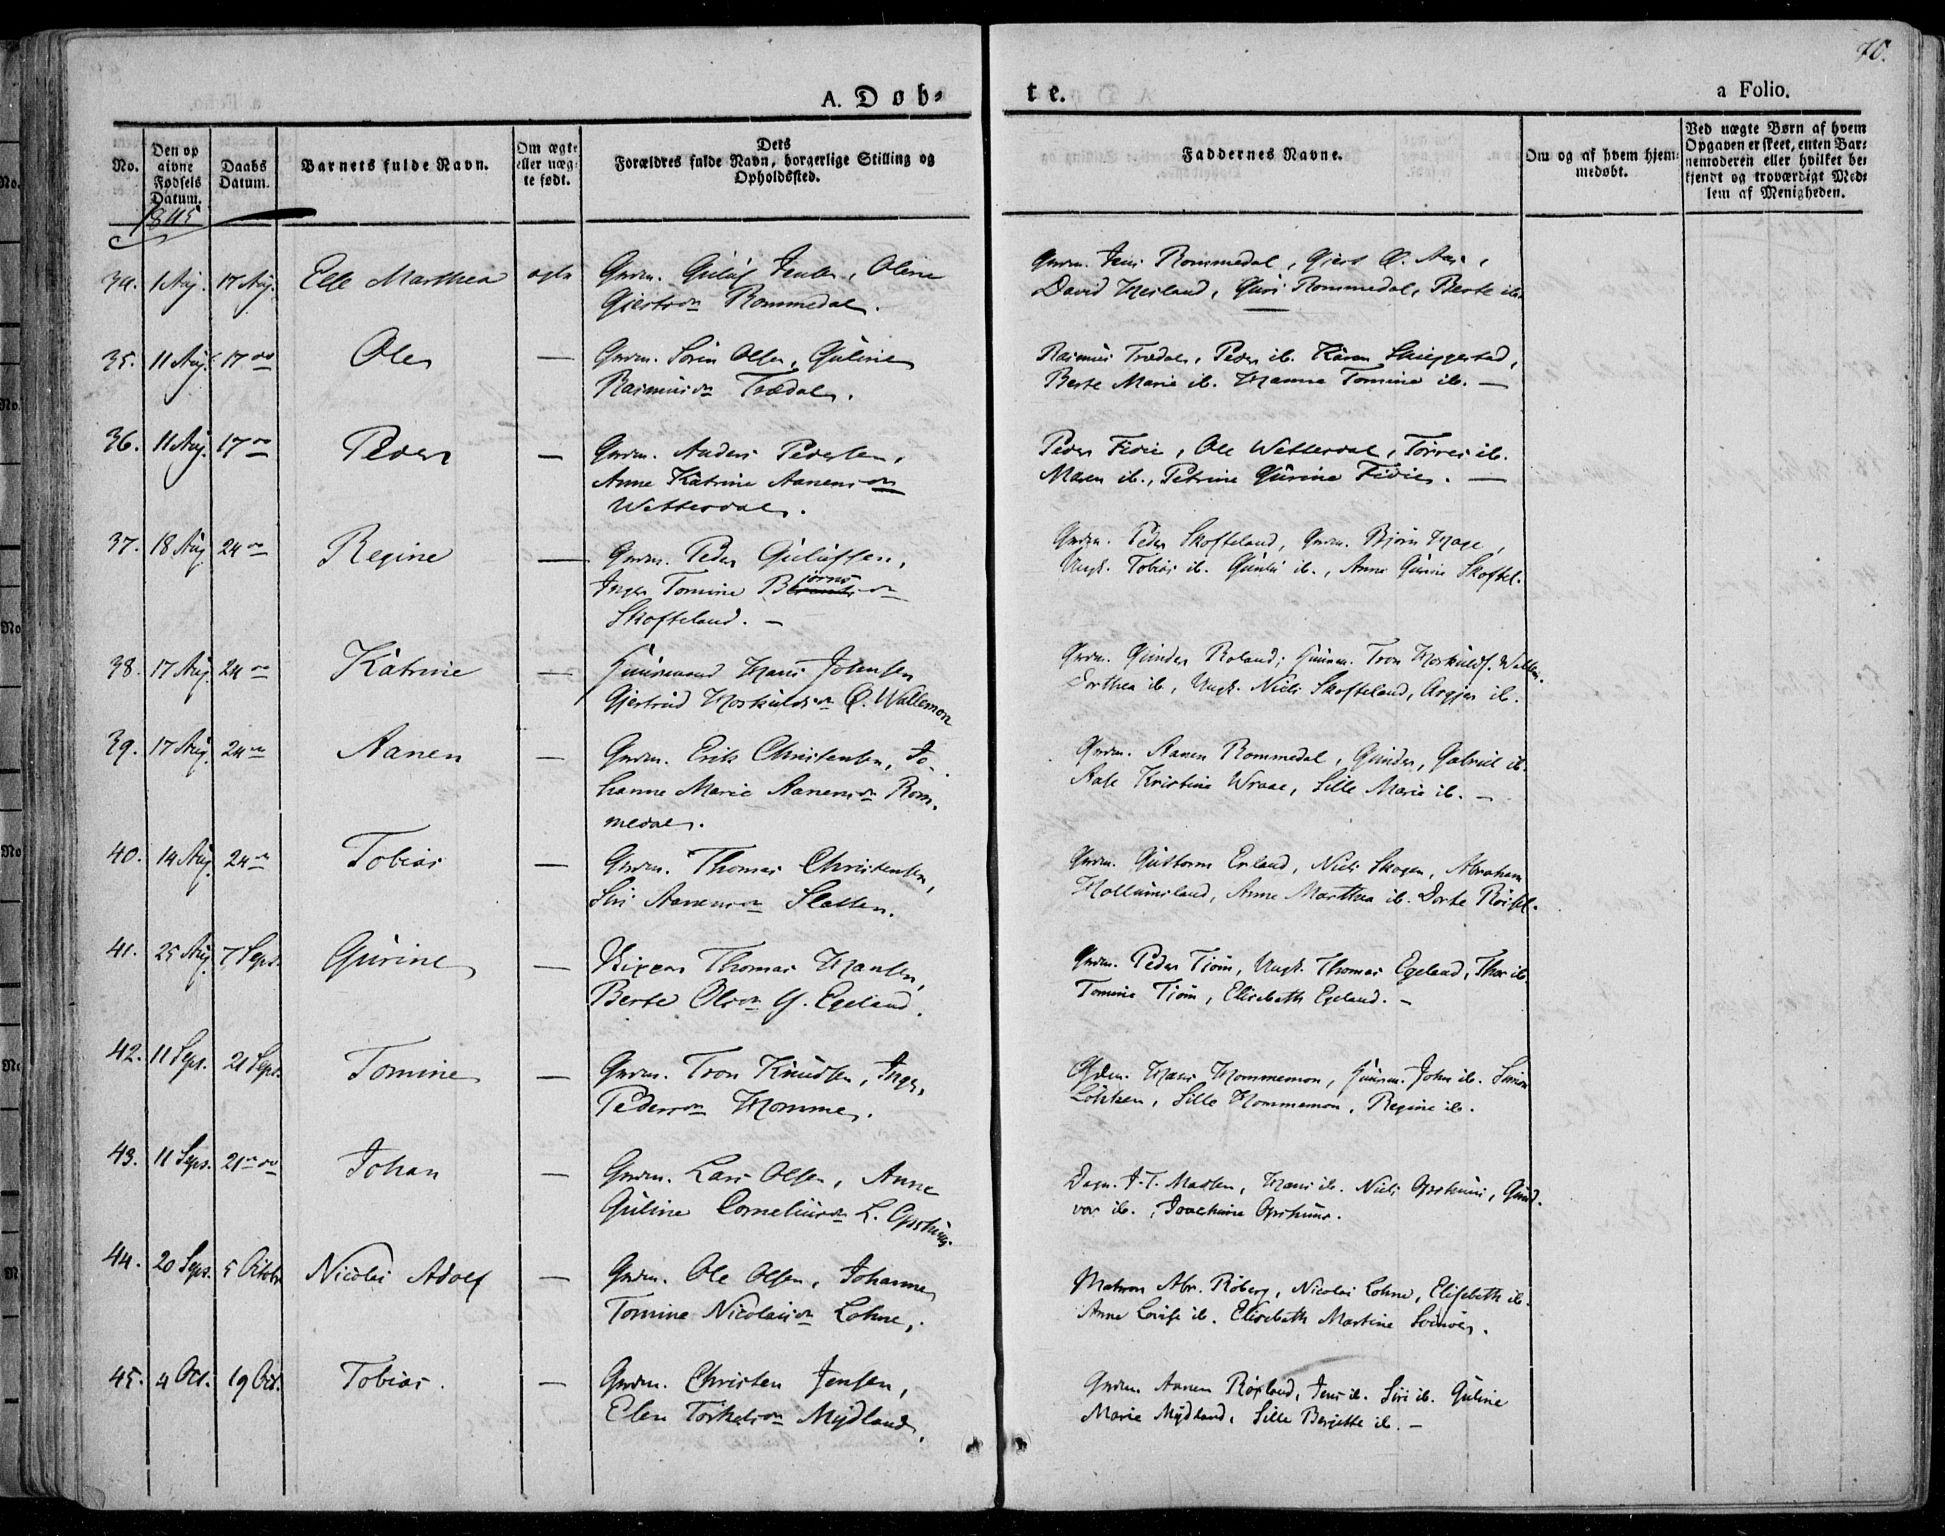 70.
A. Døb-
te.
a Folio.
No.
Den op
givne
Fødsels
Datum.
Daabs
Datum.
Barnets fulde Navn.
Om ægte
eller uæg-
te født.
Dets
Forældres fulde Navn, borgerlige Stilling og
Opholdssted.
Faddernes Navne.
Om og af hvem hjem-
medøbt.
Ved uægte Børn af hvem
Opgaven er skeet, enten Bar-
nemoderen eller hvilket be-
kjendt og troværdigt Med-
lem af Menigheden.
1845
34. 1 Aug. 17 Aug. Elle Marthea ægte Grdm. Guluf Jensen, Olene
Gjertsdr Rommedal.
Grdm. Jens Rommedal, Gjert
David Heiland, Guri Rommedal, Berte ib.
35. 11 Aug. 17 do Ole — Grdm. Sørin Olsen, Guline
Rasmusdr Trædal.
Rasmus Trædal, Peder ib. Karen Skieggestad,
Berte Marie ib. Hanna Tomine ib. —
36. 11 Aug. 17 do Peder — Grdm. Anders Pedersen,
Anne Katrine Aanensdr
Wetterdal.
Peder Fidie, Ole Wetterdal, Tørres ib.
Maren ib., Petrine Gurine Fidie. —
37. 18 Aug 24 do Regine — Grdm. Peder Gulufsen,
Inger Tomine Bjørnsdr
Skofteland. —
Grdm. Peder Skofteland, Grdm. Bjørn Hage,
Ungk. Tobias ib. Gunild ib., Anne Gurine Skoftel.
38. 17 Aug. 24 do Katrine — Huusmand Hans Johnsen
Gjertrud Hoskuldsdr Ø. Wallemon
Grdm. Gunder Roland, Huusm. Tron Hoskulds. Wallem.
Dorthea ib., Ungk. Niels Skofteland, Asgjer ib.
39. 17 Aug. 24 do Aanen — Grdm. Erik Christensen, Jo-
hanne Marie Aanensdr Rom-
medal.
Grdm. Aanen Rommedal, Gunder, Gabriel ib.
Aase Kristine Wraae, Sille Marie ib. —
40. 14 Aug. 24 do Tobias — Grdm. Thomas Christensen,
Siri Aanensdr Slatten.
Grdm. Guttorm Erland, Niels Skogen, Abraham
Hollumsland, Anne Marthea ib. Dorte
41. 25 Aug. 7 Sept. Gurine — Thomas Hansen,
Berte Olsdr Y. Egeland.
Grdm. Peder Tjøm, Ungk. Thomas Egeland, Thor ib.
Tomine Tjøm, Elisabeth Egeland. —
42. 11 Sept. 21 Sept. Tomine — Grdm. Tron Knudsen, Inger
Pedersdr Homme.
Grdm. Hans Hommemon, Huusm. John ib. Simon
Løhken, Sille Hommemon, Regine ib.
43. 11 Sept. 21 do Johan — Grdm. Lars Olsen, Anne
Guline Corneliusdr L. Opshuus.
J. T. Madsen, Hans ib. Niels Opshuus, Gund-
vor ib., Joachime Opshuus.
44. 20 Sept. 5 Octobr Nicolai Adolf — Grdm. Ole Olsen, Johanne
Tomine Nicolaisdr Lohne.
Matros Abr. Røberg, Nicolai Lohne, Elisebeth ib.
Anne Lovise ib. Elisebeth Martine
45. 4 Oct. 19 Oct. Tobias. — Grdm. Christen Jensen,
Elen Torkelsdr Mydland.
Grdm. Aanen Røyland, Jens ib. Siri ib. Guline
Marie Mydland, Sille Bergette ib. —